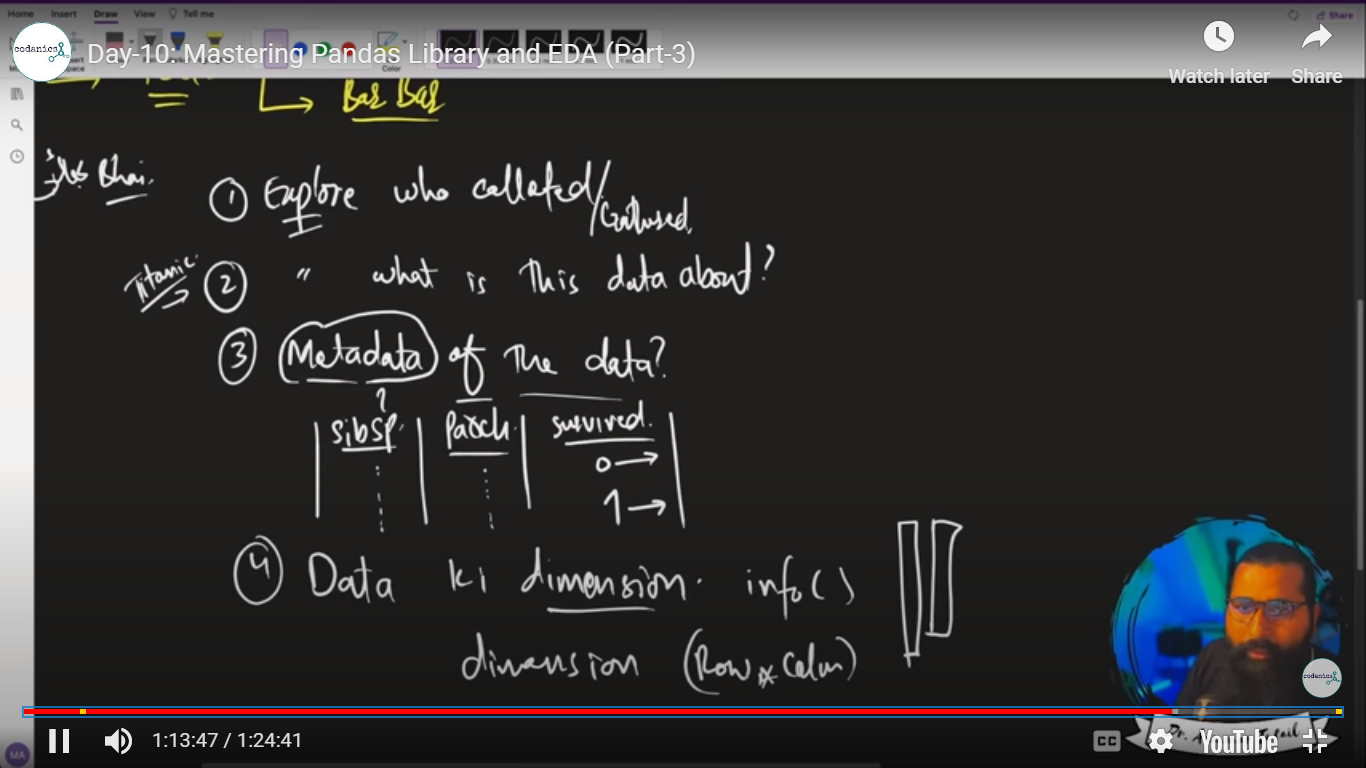 Home Insert Draw View Tell me Share
codanics
Day-10: Mastering Pandas Library and EDA (Part-3)
Color
Watch later Share
Bar Bar
Bhai.
① Explore who collated/
② " what is this data about?
Titanic
③ Metadata of the data?
?
sibsp. Parch. survived.
0 →
1 →
④ Data ki dimension. info()
dimension (Row * Colum)
codanics
MA
1:13:47 / 1:24:41
CC
YouTube
Dr.